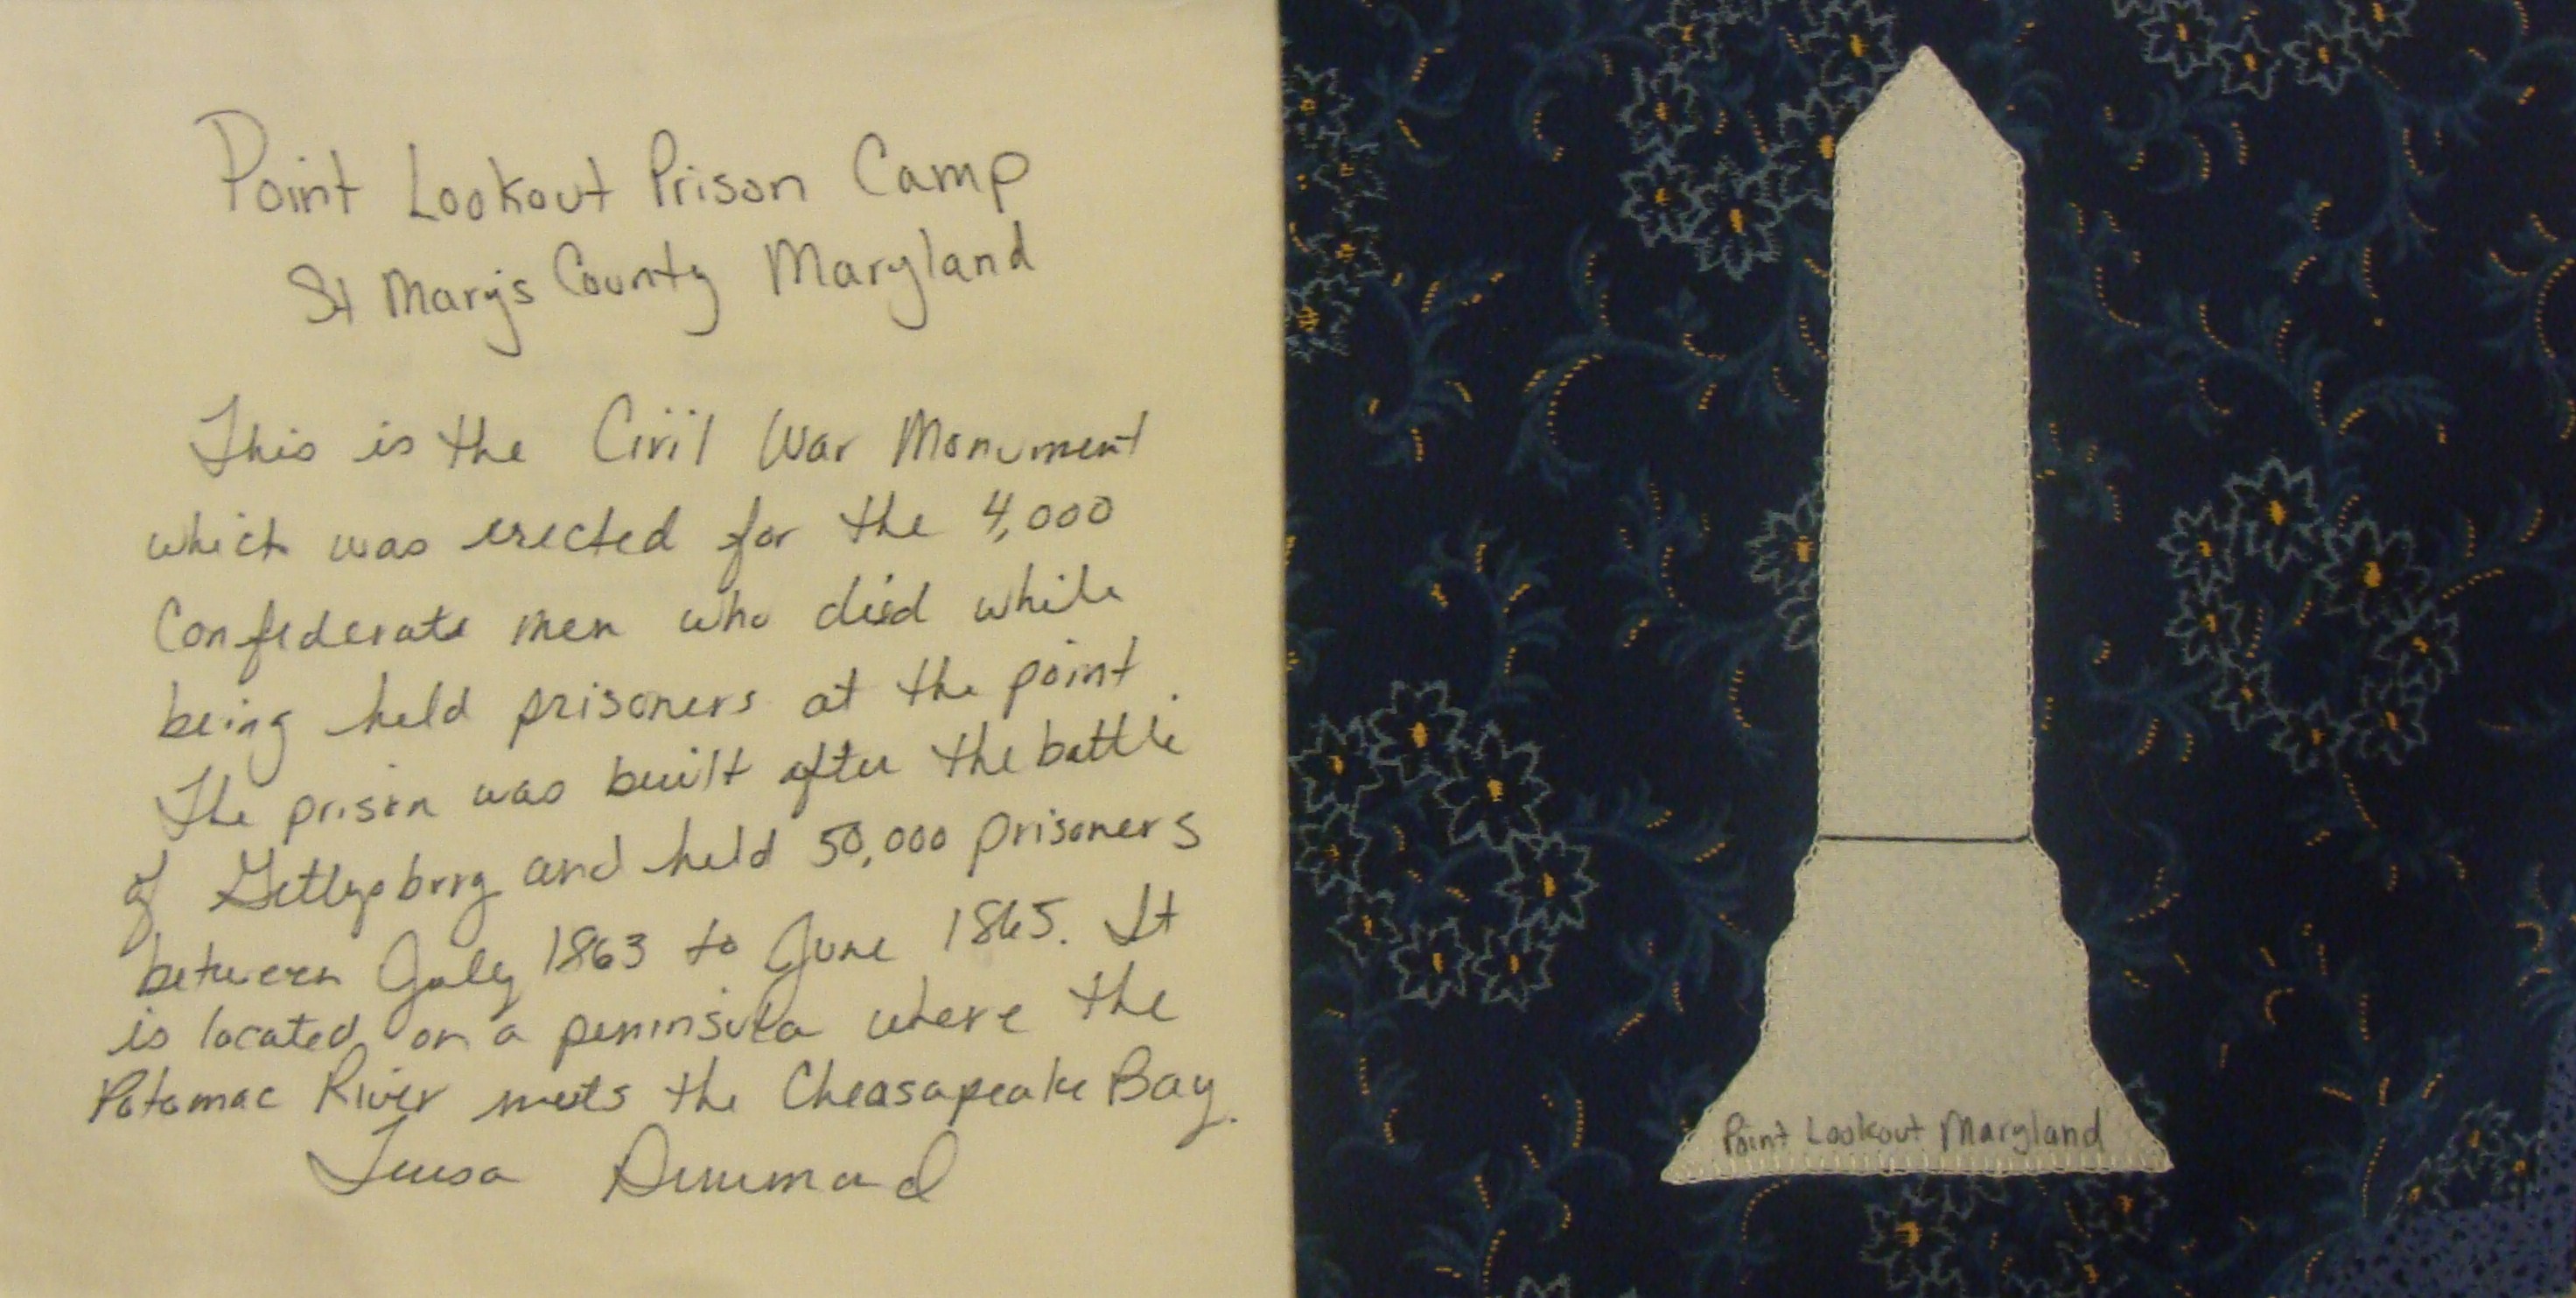 Point Lookout Prison Camp
St Mary's County Maryland
This is the Civil War Monument
which was erected for the 4,000
Confederate men who died while
being held prisoners at the point.
The prison was built after the battle
of Gettysburg and held 50,000 prisoners
between July 1863 to June 1865. It
is located on a peninsula where the
Potomac River meets the Cheasapeake Bay.
Point Lookout Maryland